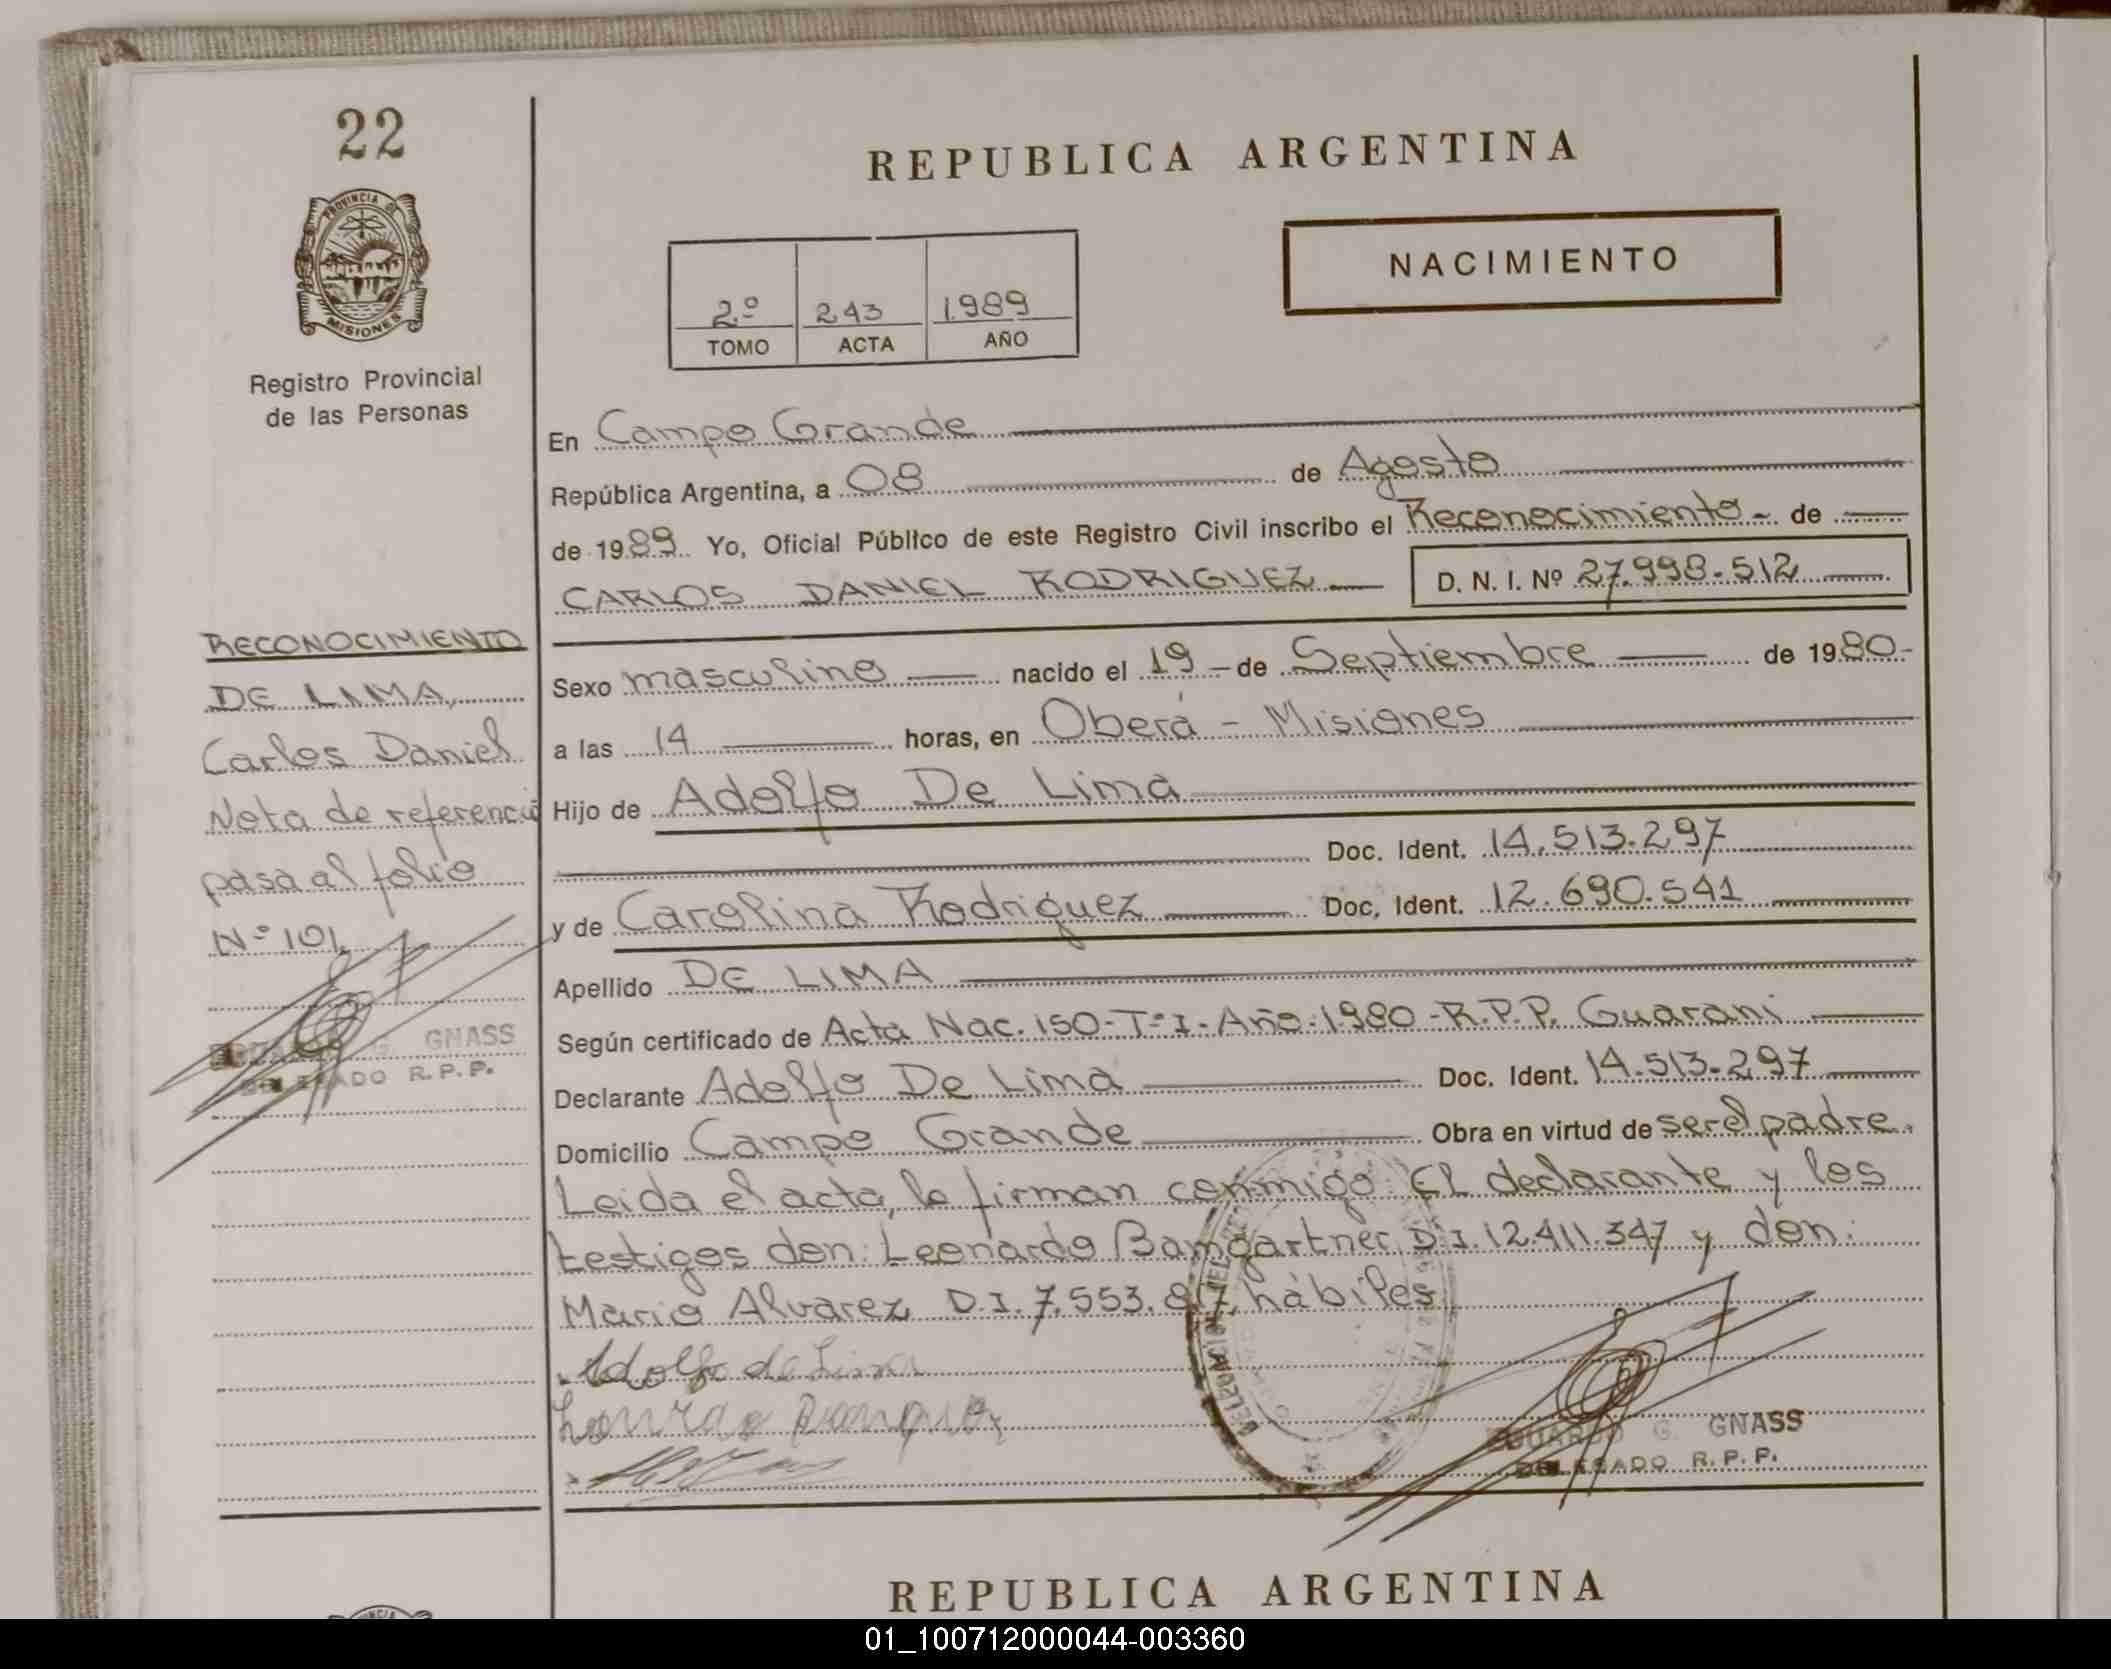 22
REPUBLICA ARGENTINA
PROVINCIA DE
MISIONES
NACIMIENTO
2.º 243 1989
TOMO ACTA AÑO
Registro Provincial
de las Personas
En Campo Grande
República Argentina, a 08 de Agosto
de 1989. Yo, Oficial Público de este Registro Civil inscribo el Reconocimiento - de
CARLOS DANIEL RODRIGUEZ D. N. I. Nº 27.998.512
Sexo masculino nacido el 19 - de Septiembre de 1980-
a las 14 horas, en Oberá - Misiones
Hijo de Adolfo De Lima
Doc. Ident. 14.513.297
y de Carolina Rodriguez Doc. Ident. 12.690.541
Apellido DE LIMA
Según certificado de Acta Nac. 150-Tº I- Año-1980-R.P.P. Guarani
Declarante Adolfo De Lima Doc. Ident. 14.513.297
Domicilio Campo Grande Obra en virtud de ser el padre.
Leida el acta, la firman conmigo: El declarante y los
testigos don: Leonardo Bamgartner D.I. 12.411.347 y don:
Mario Alvarez D.I. 7.553.817, hàbiles
Adolfo de Lima
EDUARDO G. GNASS
DELEGADO R.P.P.
RECONOCIMIENTO
DE LIMA,
Carlos Daniel
Nota de referencia
pasa al folio
Nº 101,
EDUARDO G. GNASS
DELEGADO R.P.P.
REPUBLICA ARGENTINA
01_100712000044-003360